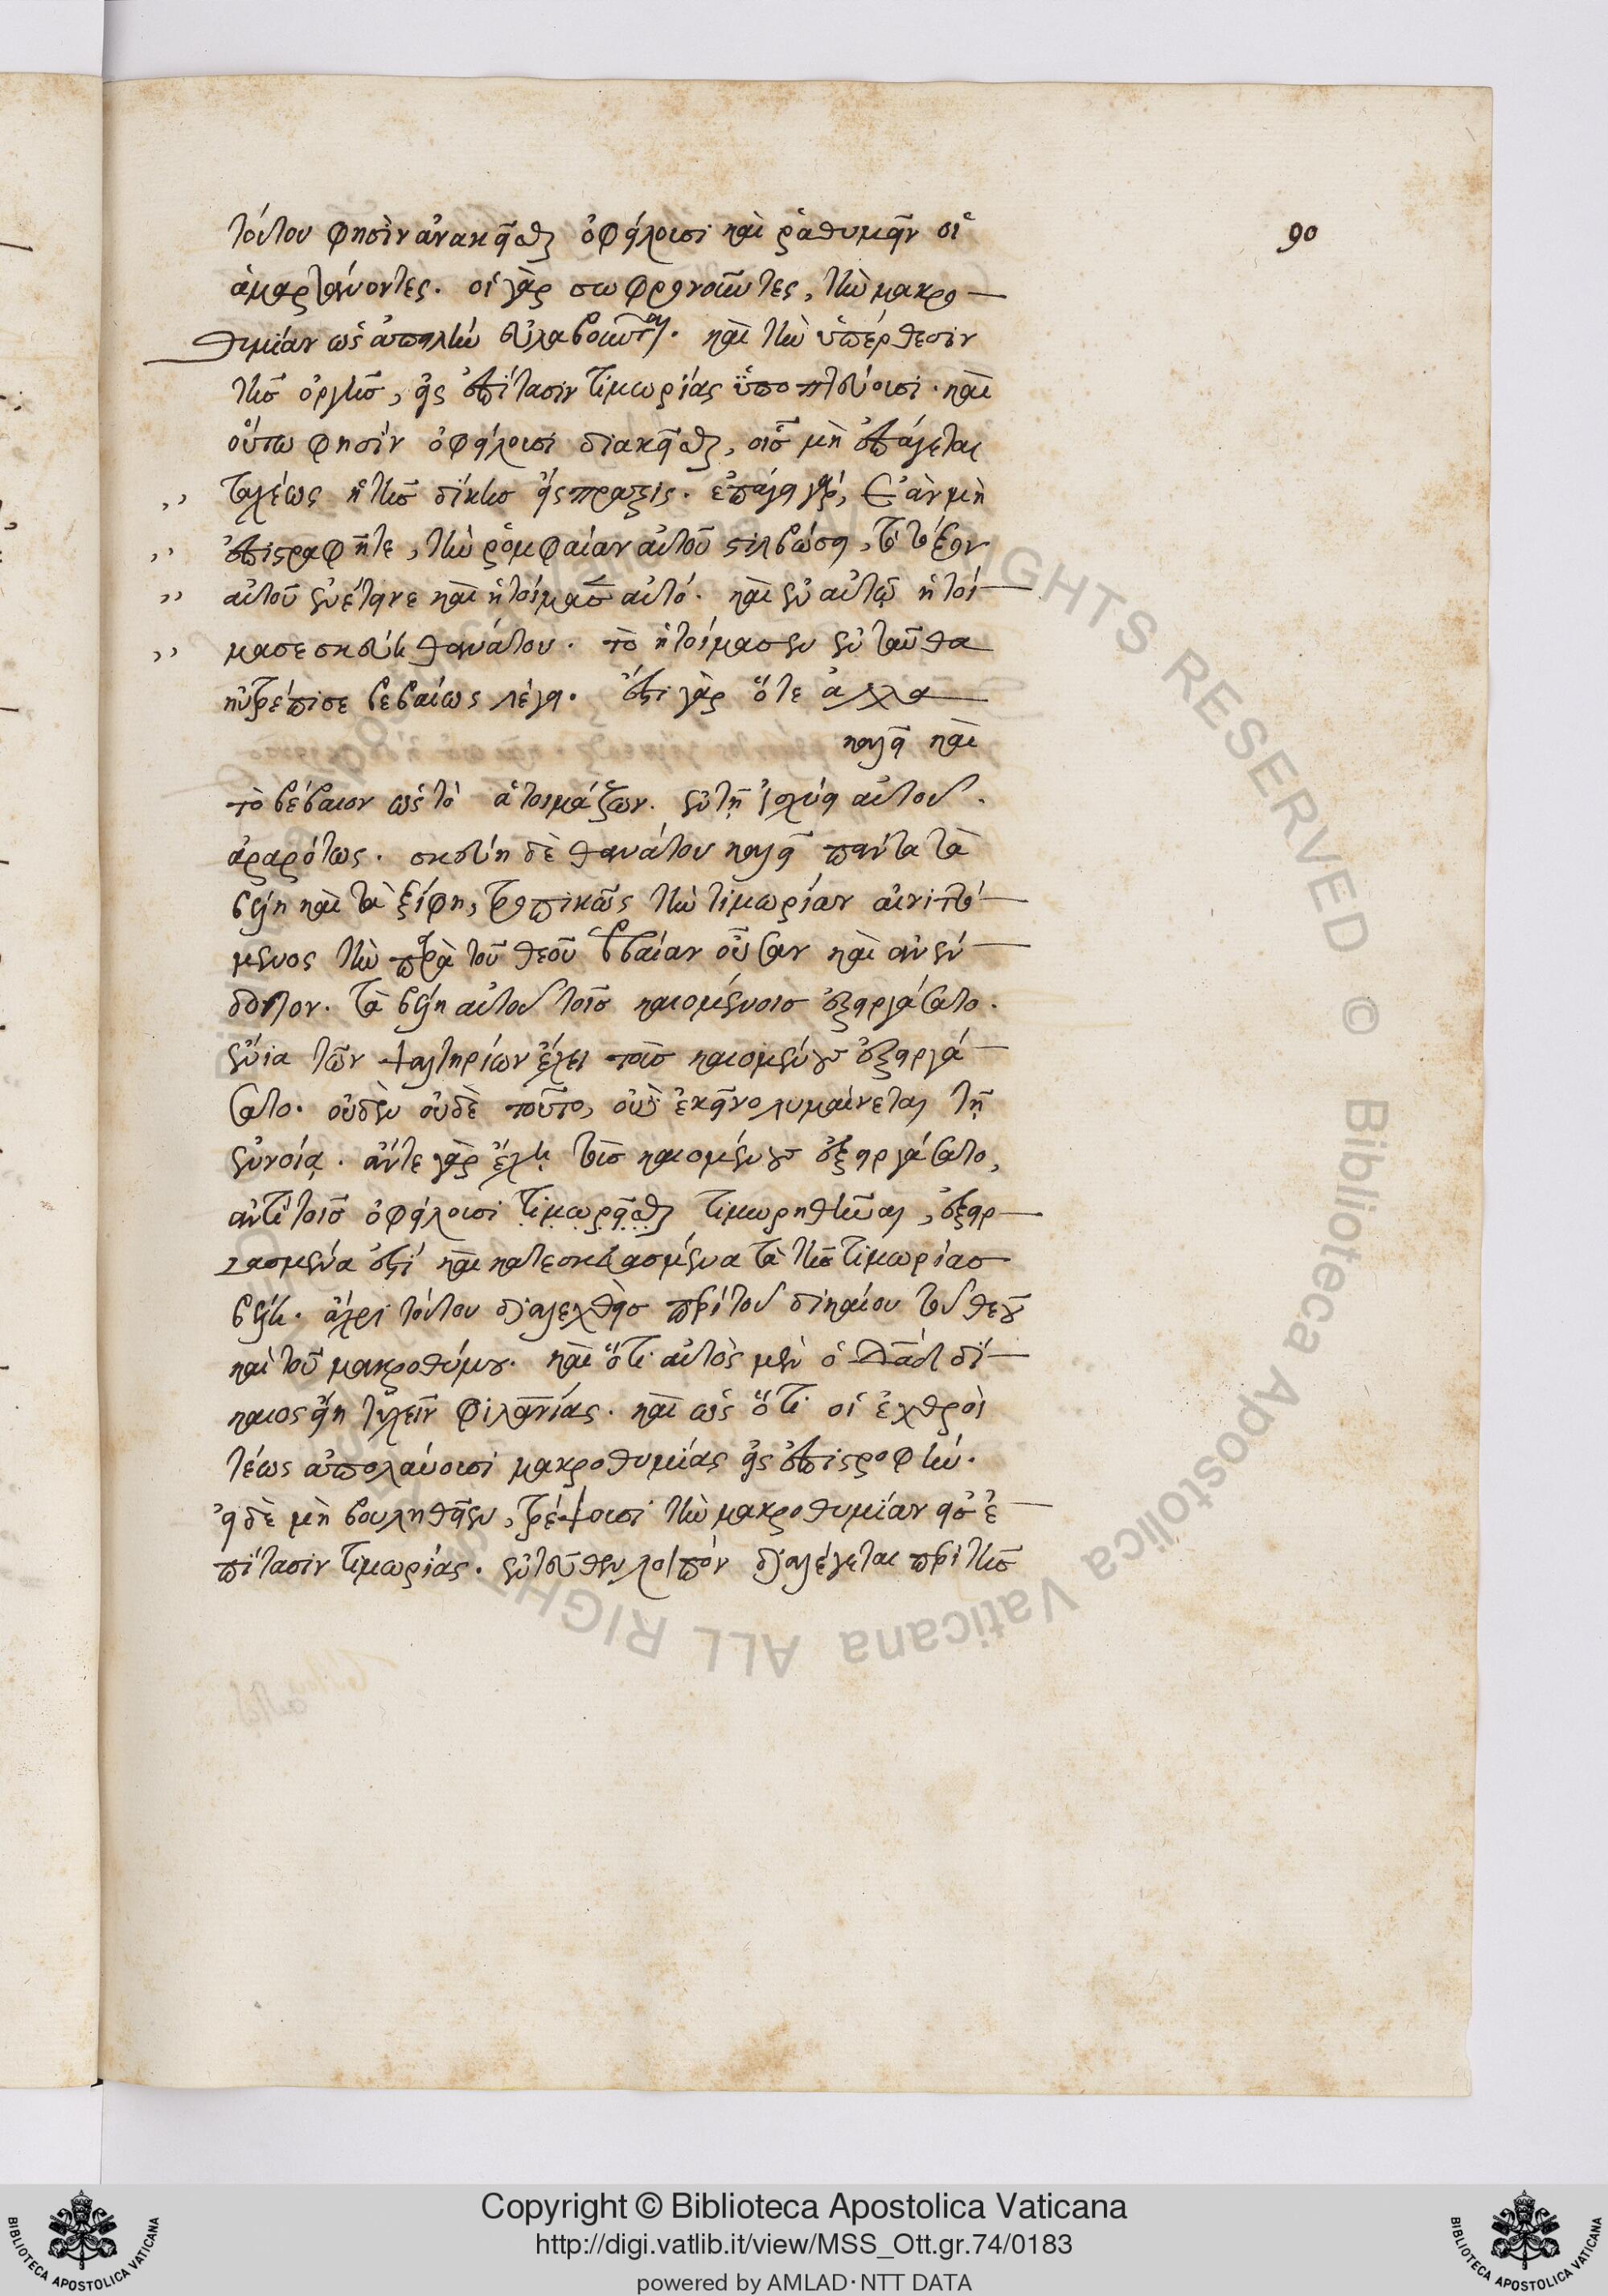 90
τούτου φησὶν ἀνακεῖσθαι ὀφείλουσι καὶ ῥαθυμεῖν οἱ
ἁμαρτάνοντες. οἱ γὰρ σωφρονοῦντες, τὴν μακρο
θυμίαν ὡς ἀπειλὴν εὐλαβοῦνται. καὶ τὴν ὑπέρθεσιν
τῆς ὀργῆς, εἰς ἐπίτασιν τιμωρίας ὑποπτεύουσι. καὶ
οὕτω φησὶν ὀφείλουσι διακεῖσθαι, οἷς μὴ ἐπάγεται
τελέως ἡ τῆς δίκης εἴσπραξις. ἐπάγει γάρ, ἐὰν μὴ
ἐπιστραφῆτε, τὴν ῥομφαίαν αὐτοῦ στιλβώσει, τὸ τόξον
αὐτοῦ ἐνέτεινε καὶ ἡτοίμασεν αὐτό. καὶ ἐν αὐτῷ ἡτοί
μασε σκεύη θανάτου. τὸ ἡτοίμασεν ἐνταῦθα
ηὐτρέπισε βεβαίως λέγει. ἔστι γὰρ ὅτε ἀλλὰ
καλεῖ καὶ
τὸ βέβαιον ὡς τὸ ἑτοιμάζων ἐν τῇ ἰσχύϊ αὐτοῦ.
ἀραρότως. σκεύη δὲ θανάτου καλεῖ πάντα τὰ
βέλη καὶ τὰ ξίφη, τροπικῶς τὴν τιμωρίαν αἰνιττό
μενος τὴν παρὰ τοῦ θεοῦ βεβαίαν οὖσαν καὶ ἀνέν
δοτον. τὰ βέλη αὐτοῦ τοῖς καιομένοις ἐξειργάσατο.
ἔνια τῶν ψαλτηρίων ἔχει τοῖς καιομένοις ἐξειργά
σατο. οὐδὲν οὐδὲ τοῦτο, οὐδ' ἐκεῖνο λυμαίνεται τῇ
ἐννοίᾳ. ἄντε γὰρ ἔχῃ τοῖς καιομένοις ἐξειργάσατο,
ἀντὶ τοῖς ὀφείλουσι τιμωρεῖσθαι τιμωρηθῆναι, ἐξειρ
γασμένα ἐστὶ καὶ κατεσκευασμένα τὰ τῆς τιμωρίας
βέλη. ἄχρι τούτου διαλεχθεὶς περὶ τοῦ δικαίου τοῦ θεοῦ
καὶ τοῦ μακροθύμου. καὶ ὅτι αὐτὸς μὲν ὁ δαδ δί
καιος εἴη τυχεῖν φιλανίας. καὶ ὡς ὅτι οἱ ἐχθροὶ
τέως ἀπολαύουσι μακροθυμίας εἰς ἐπιστροφήν.
εἰ δὲ μὴ βουληθεῖεν, τρέψουσι τὴν μακροθυμίαν εἰς ἐ
πίτασιν τιμωρίας. ἐντεῦθεν λοιπὸν διαλέγεται περὶ τῆς
Copyright © Biblioteca Apostolica Vaticana
http://digi.vatlib.it/view/MSS_Ott.gr.74/0183
powered by AMLAD·NTT DATA
BIBLIOTECA APOSTOLICA VATICANA
BIBLIOTECA APOSTOLICA VATICANA
© Biblioteca Apostolica Vaticana ALL RIGHTS RESERVED